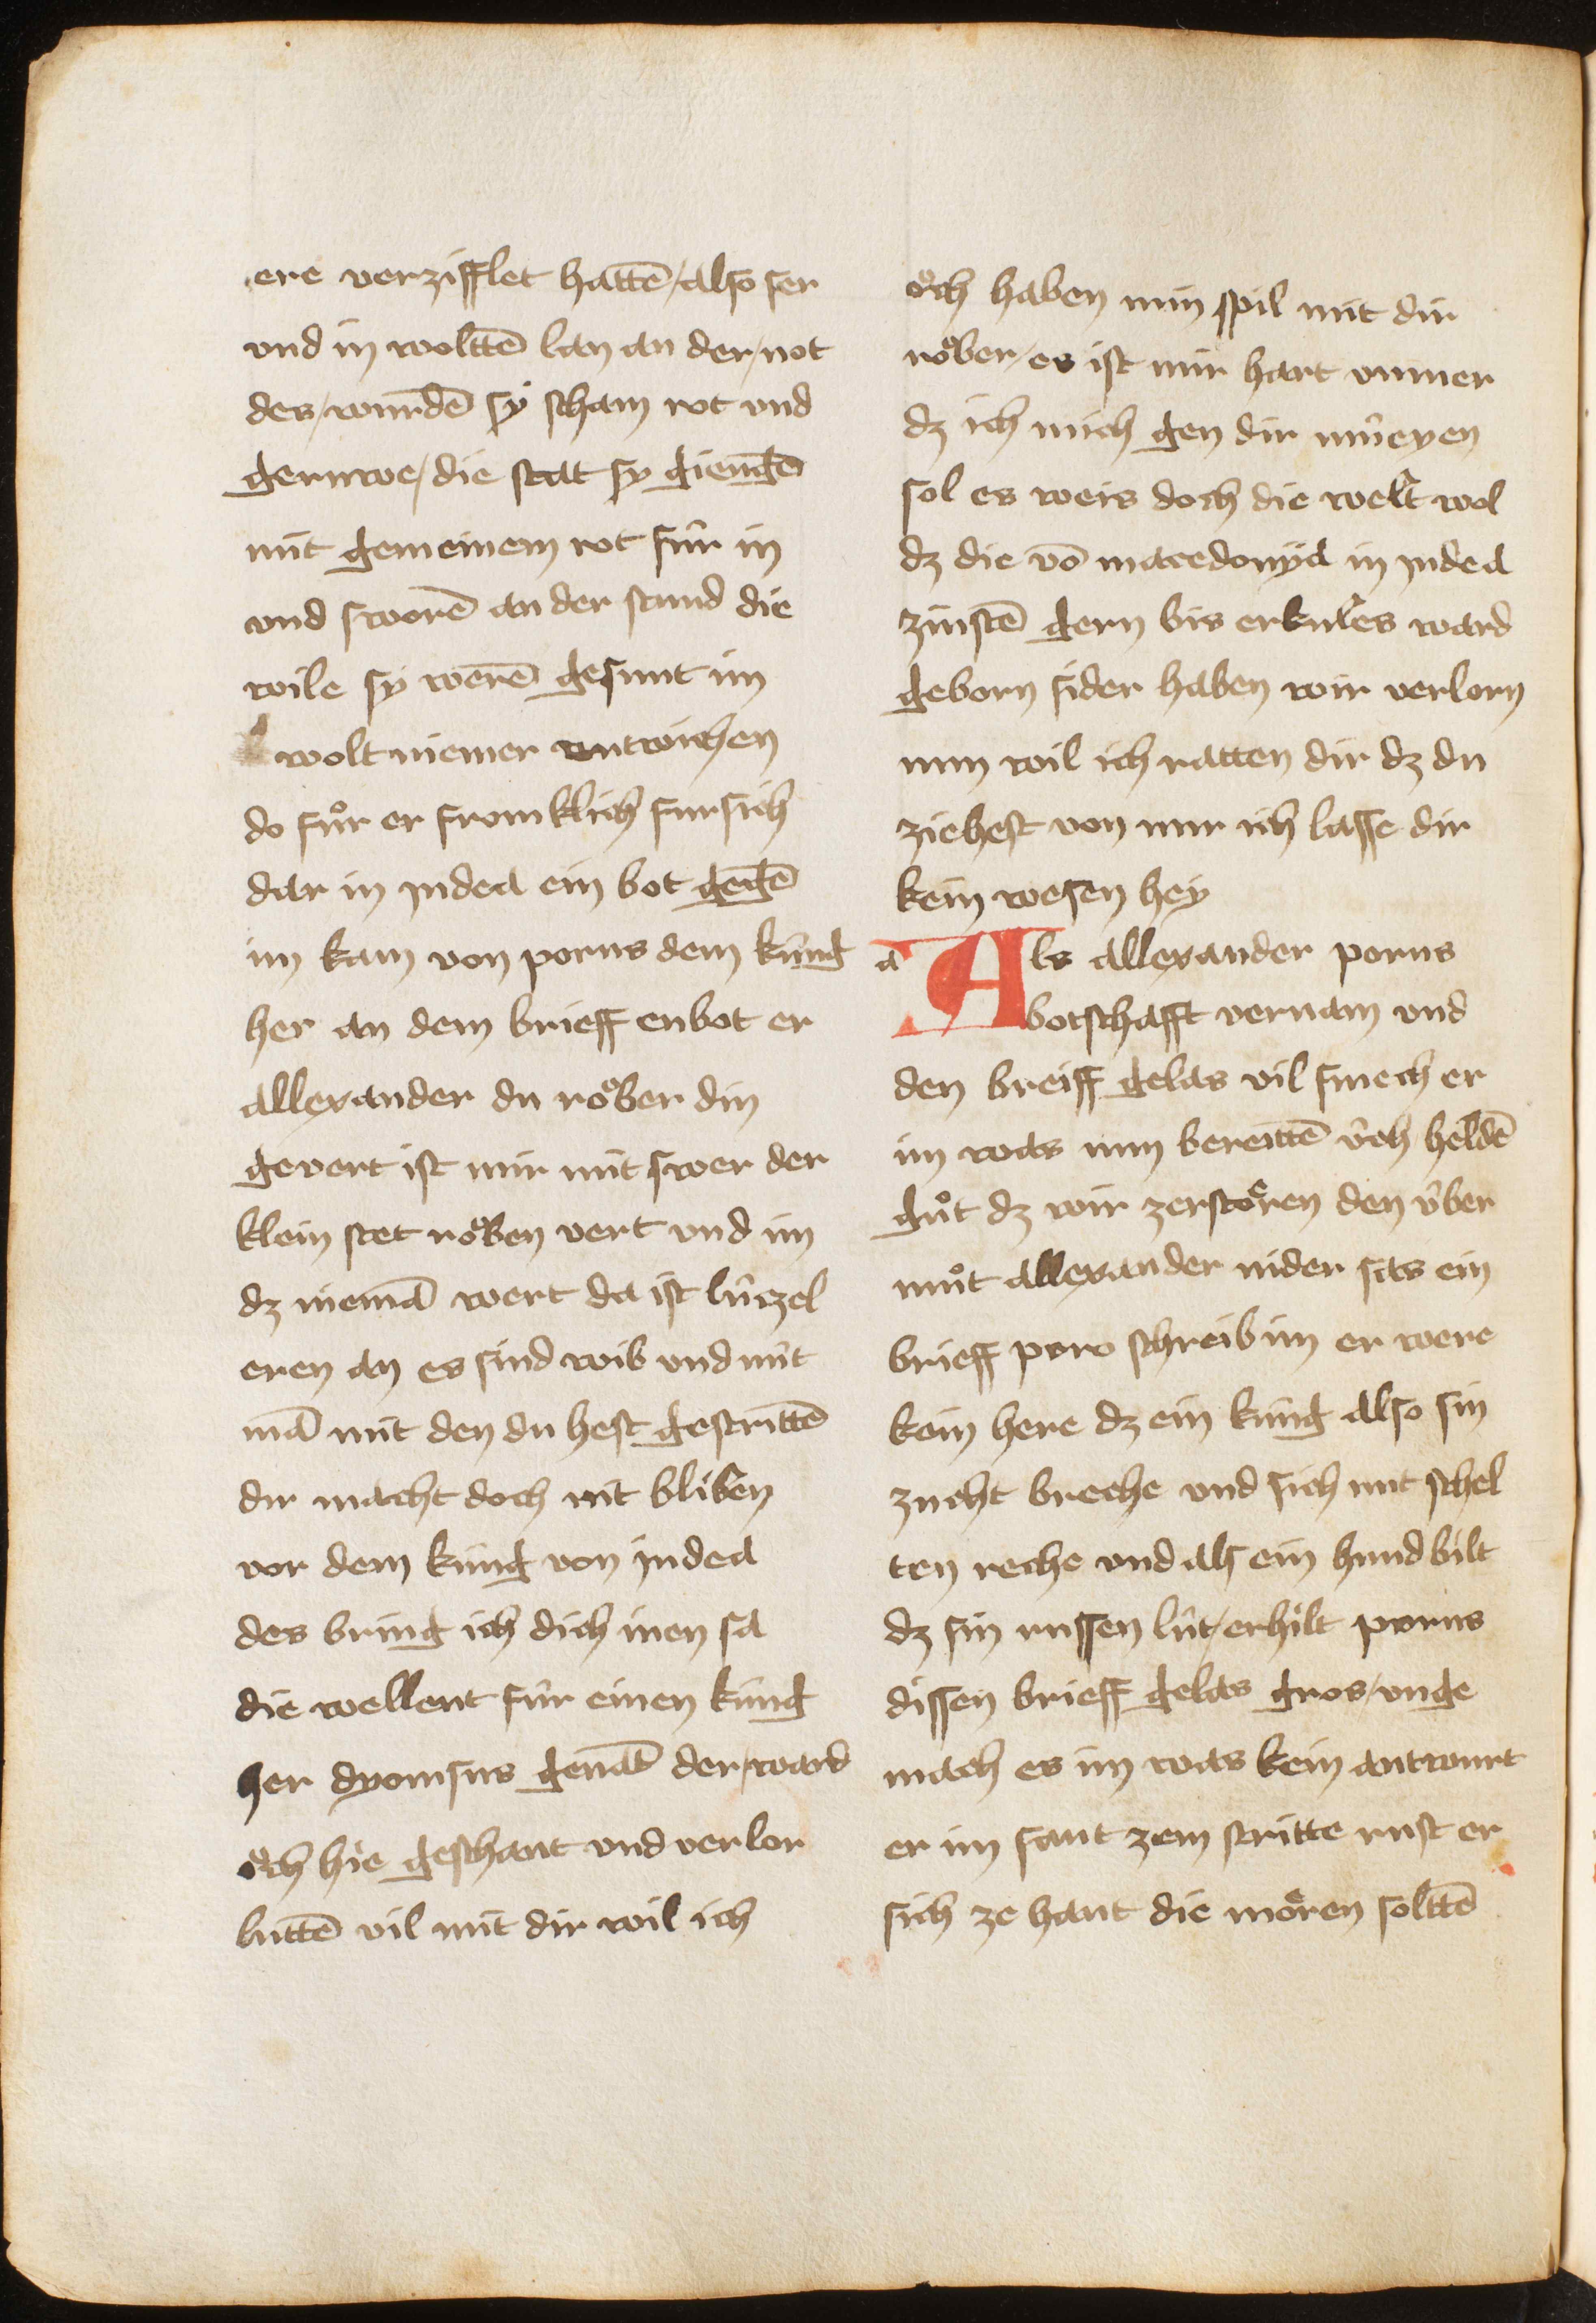 ere verzifflet hattē / also ser
vnd in wolttē lan an der / not
des / wurdē sÿ scham rot vnd
geruwe / die stat sÿ giengē
mit gemeinem rot fúr in
vnd sworē an der stund die
wile sÿ werē gesunt im
wolt niemer entwichen
do fůr er fromklich fursich
dar in judea ein bot gegē
im kam von porus dem kúng
her an dem brieff enbot er
allexander du rǒber din
gevert ist mir nút swer der
klein stet rǒben vert vnd im
dz niemā wert da ist lúczel
eren an es sind wib vnd nút
mā mit den du hest gestrittē
dir macht doch nit bliben
vor dem kúng von jndea
des bring ich dich jnen sa
die wellent fúr einen kúng
her dyonisus genāt der / ward
ǒch hie geschant vnd verlor
luttē vil mit dir wil ich
ǒch haben min spil mit dir
rǒber / es ist mir hart vnmer
dz ich mich gen dir múeyen
sol es weis doch die welt wol
dz die vō macedonÿa in jndea
zinstē gern bis erkules ward
geborn sider haben wir verlorn
nun wil ich ratten dir dz du
ziehest von mir ich lasse dir
kein wesen heÿ
a Als allexander porus
botschafft vernam vnd
den breiff gelas vil smech er
im was nun bereittē v́ch heldē
gůt dz wir zerstören den v́ber
můt allexander nider sas ein
brieff poro schreib im er were
kein here dz ein kúng also sin
zucht breche vnd sich mit schel
ten reche vnd als ein hund bilt
dz sin russen lút / erhilt porus
dissen brieff gelas gros / vnge
mach es im was kein antwurt
er im sant zem stritte rust er
sich ze hant die mören solttē